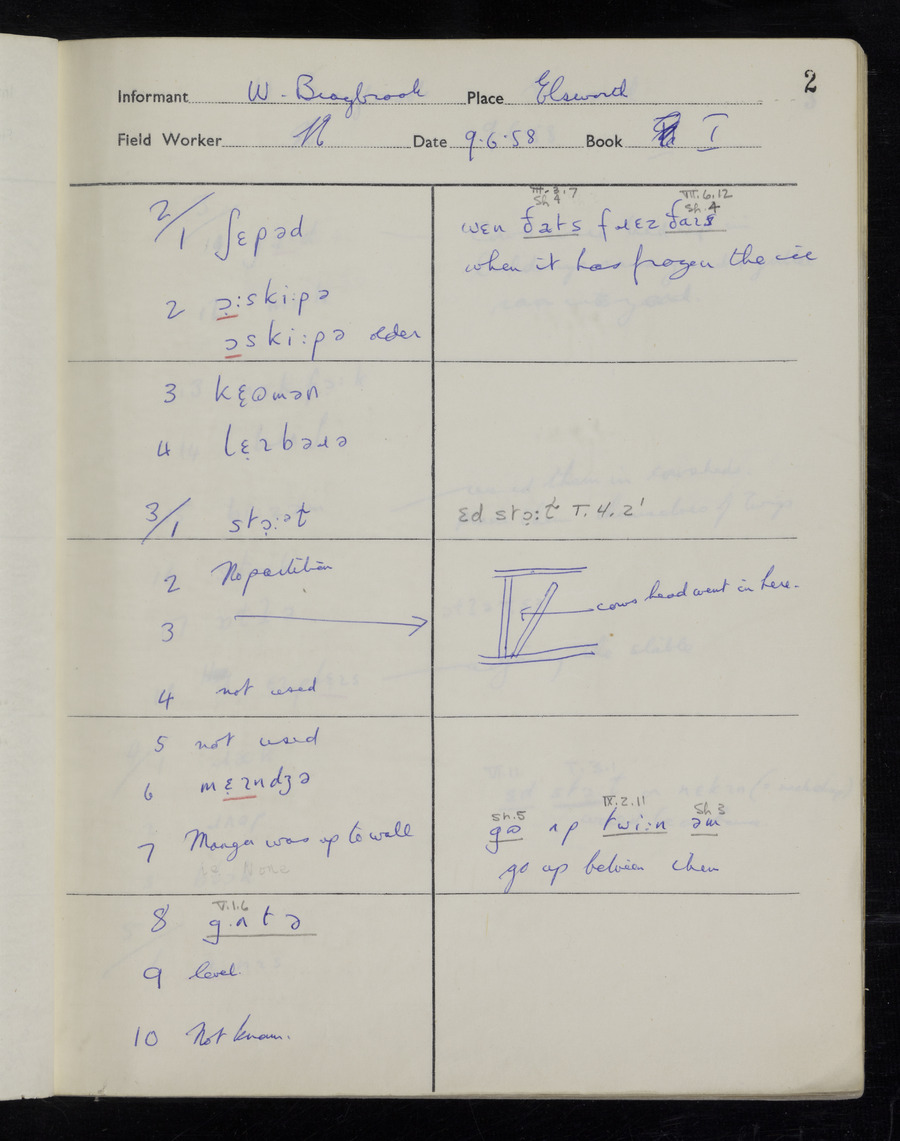 2
Informant W. Braybrook Place Elsworth
Field Worker N Date 9.6.58 Book I
2/1 ʃɛpəd
2 ə̣:ski:pə
əski:pə older
3 kɛ̣ωmən
4 lɛ̣ɪbəɹə
3/1 stɔ̣:ət̬
2 No partition
3
4 not used
5 not used
6 mɛ̣ɪndʒə
7 Manger was up to wall
as None
V.1.6
8 gʌtə
9 level.
10 Not known.
VII.6.12
Sh.4 Sh.4
wɛn ðəts fɹɛz ðaɪs
when it has frozen the ice
ɛd stɔ̣:t̬ T.4.2'
cows head went in here.
Sh.5 IX.2.11 Sh 3
gω ʌp twi:n əm
go up between them